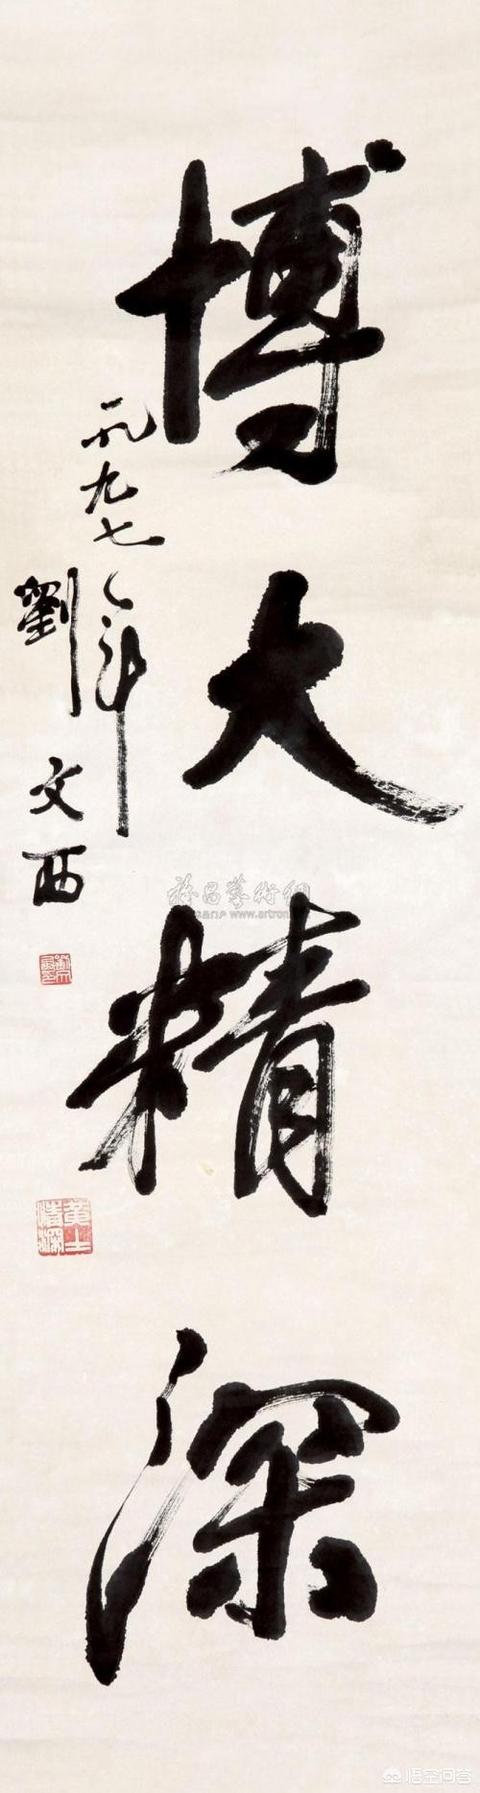 博大精深
一九九七年
劉文西
黄土情深
雅昌藝術網
www.artron
悟空问答